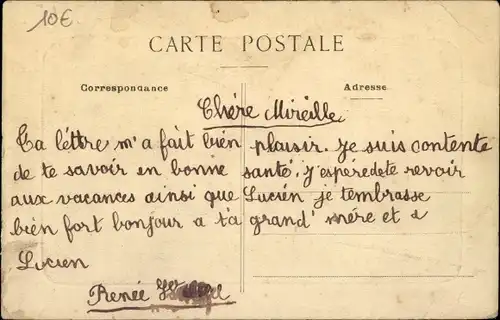 10€
CARTE POSTALE
Correspondance
Adresse
Chére Mireille
Ta léttre m'a fait bién plaisir. Je suis contente
de te savoir en bonne santé. j'espéredete revoir
aux vacances ainsi que Lucién je tembrasse
bién fort bonjour a ta grand' mére et a
Lucien
Renée